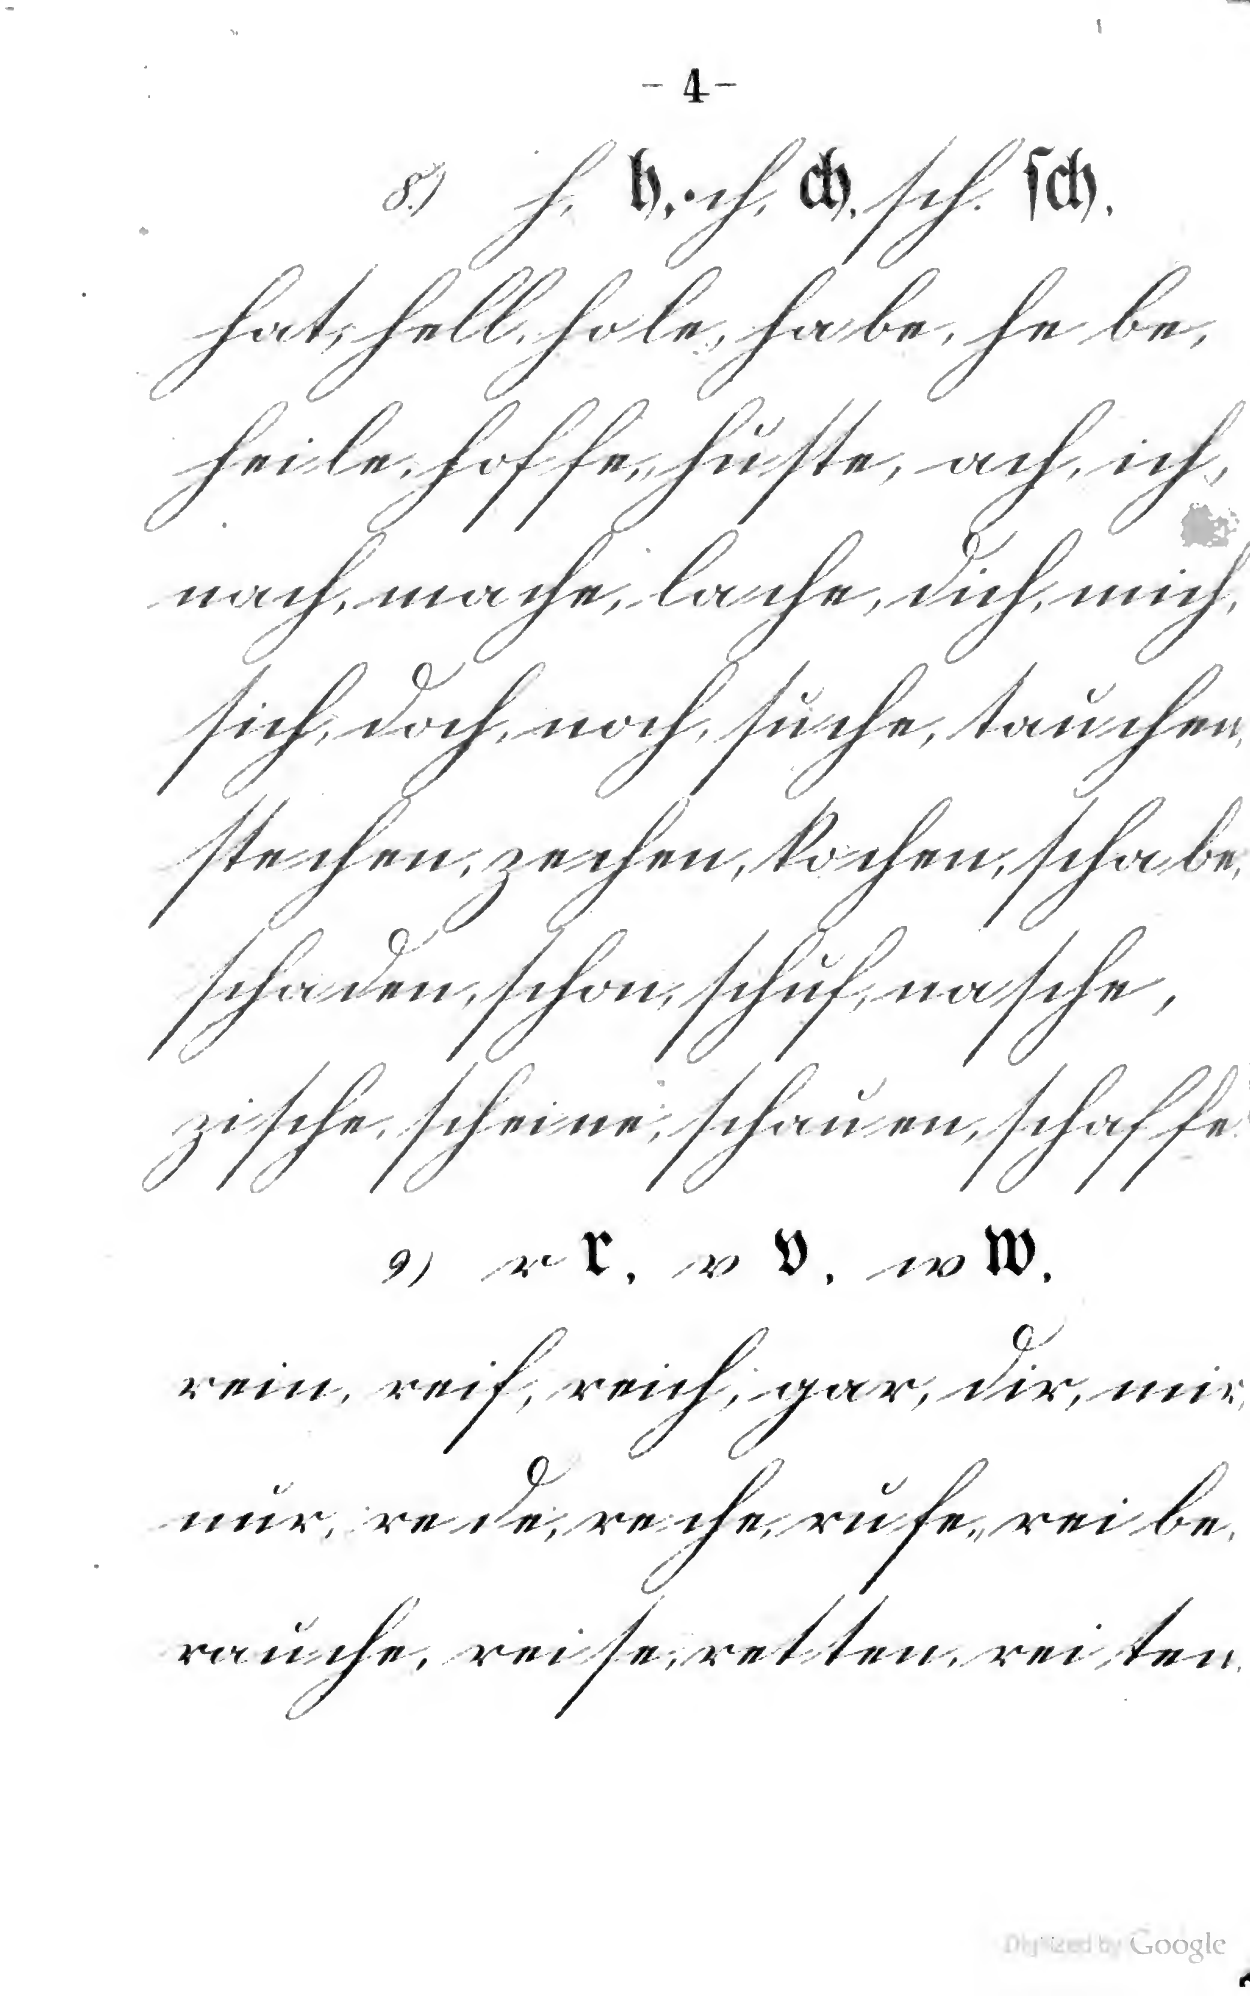 - 4 -
8.) h, h, ch, ch, sch. sch.
hat, hell, hole, habe, he be,
heile, hoffe, huste, ach, ich,
nach, mache, lache, dich, mich,
sich, doch, noch, suche, tauchen,
stechen, zechen, kochen, schabe,
schaden, schon, schuf, nasche,
zische, scheine, schauen, schaffe.
9) r r, v v, w w.
rein, reif, reich, gar, dir, mir,
nur, rede, reche, rufe, reibe,
rauche, reise, retten, reiten.
Digitized by Google